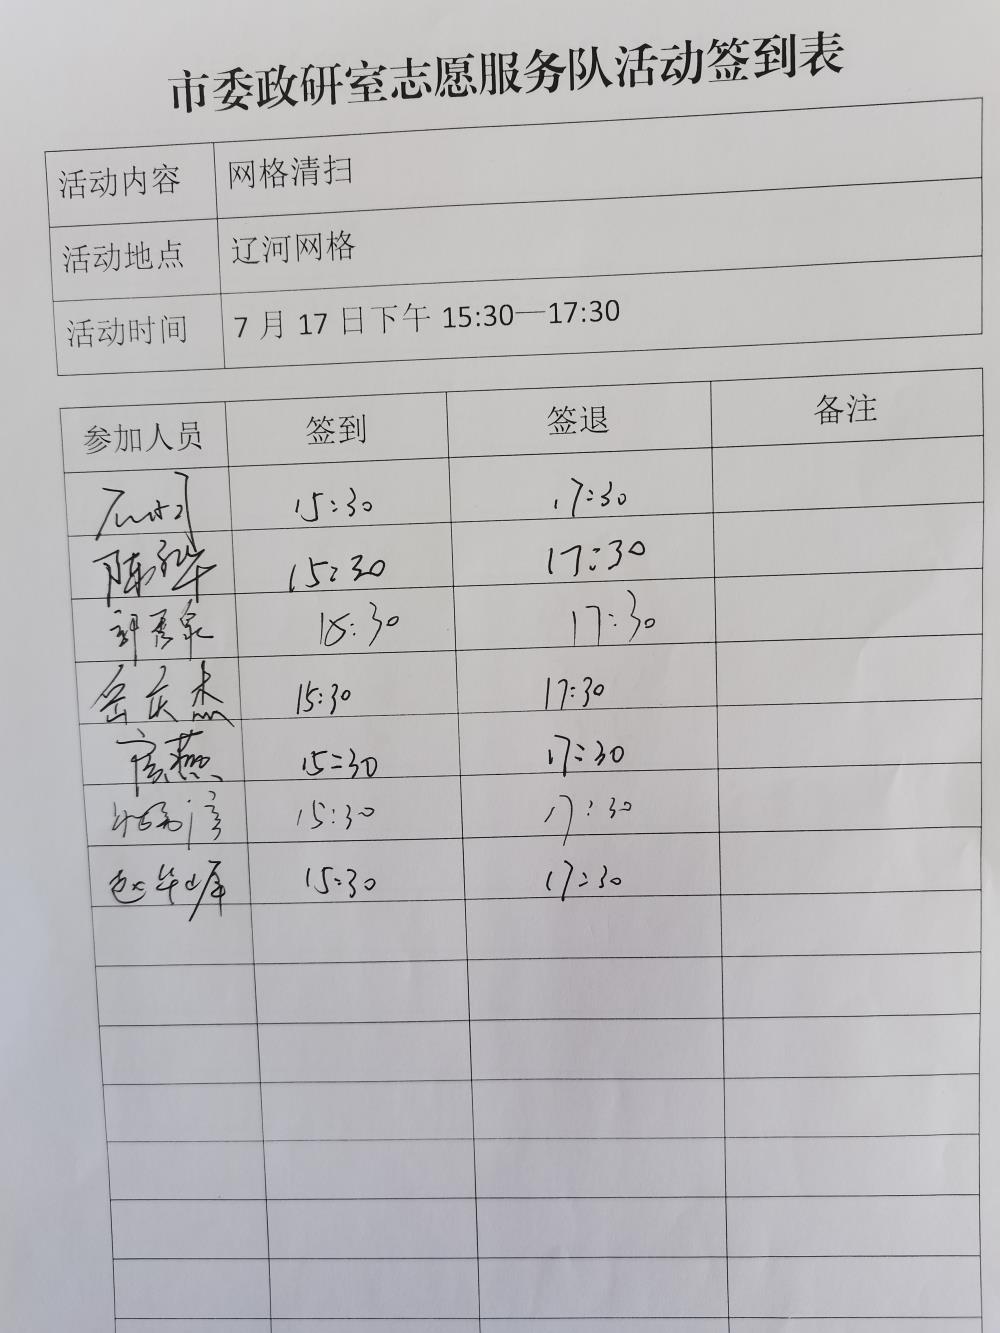 市委政研室志愿服务队活动签到表
活动内容 网格清扫
活动地点 辽河网格
活动时间 7月17日下午15:30—17:30
参加人员 签到 签退 备注
15:30 17:30
陈永华 15:30 17:30
17:30
岳庆杰 15:30 17:30
15:30 17:30
15:30 17:30
赵华峰 15:30 17:30